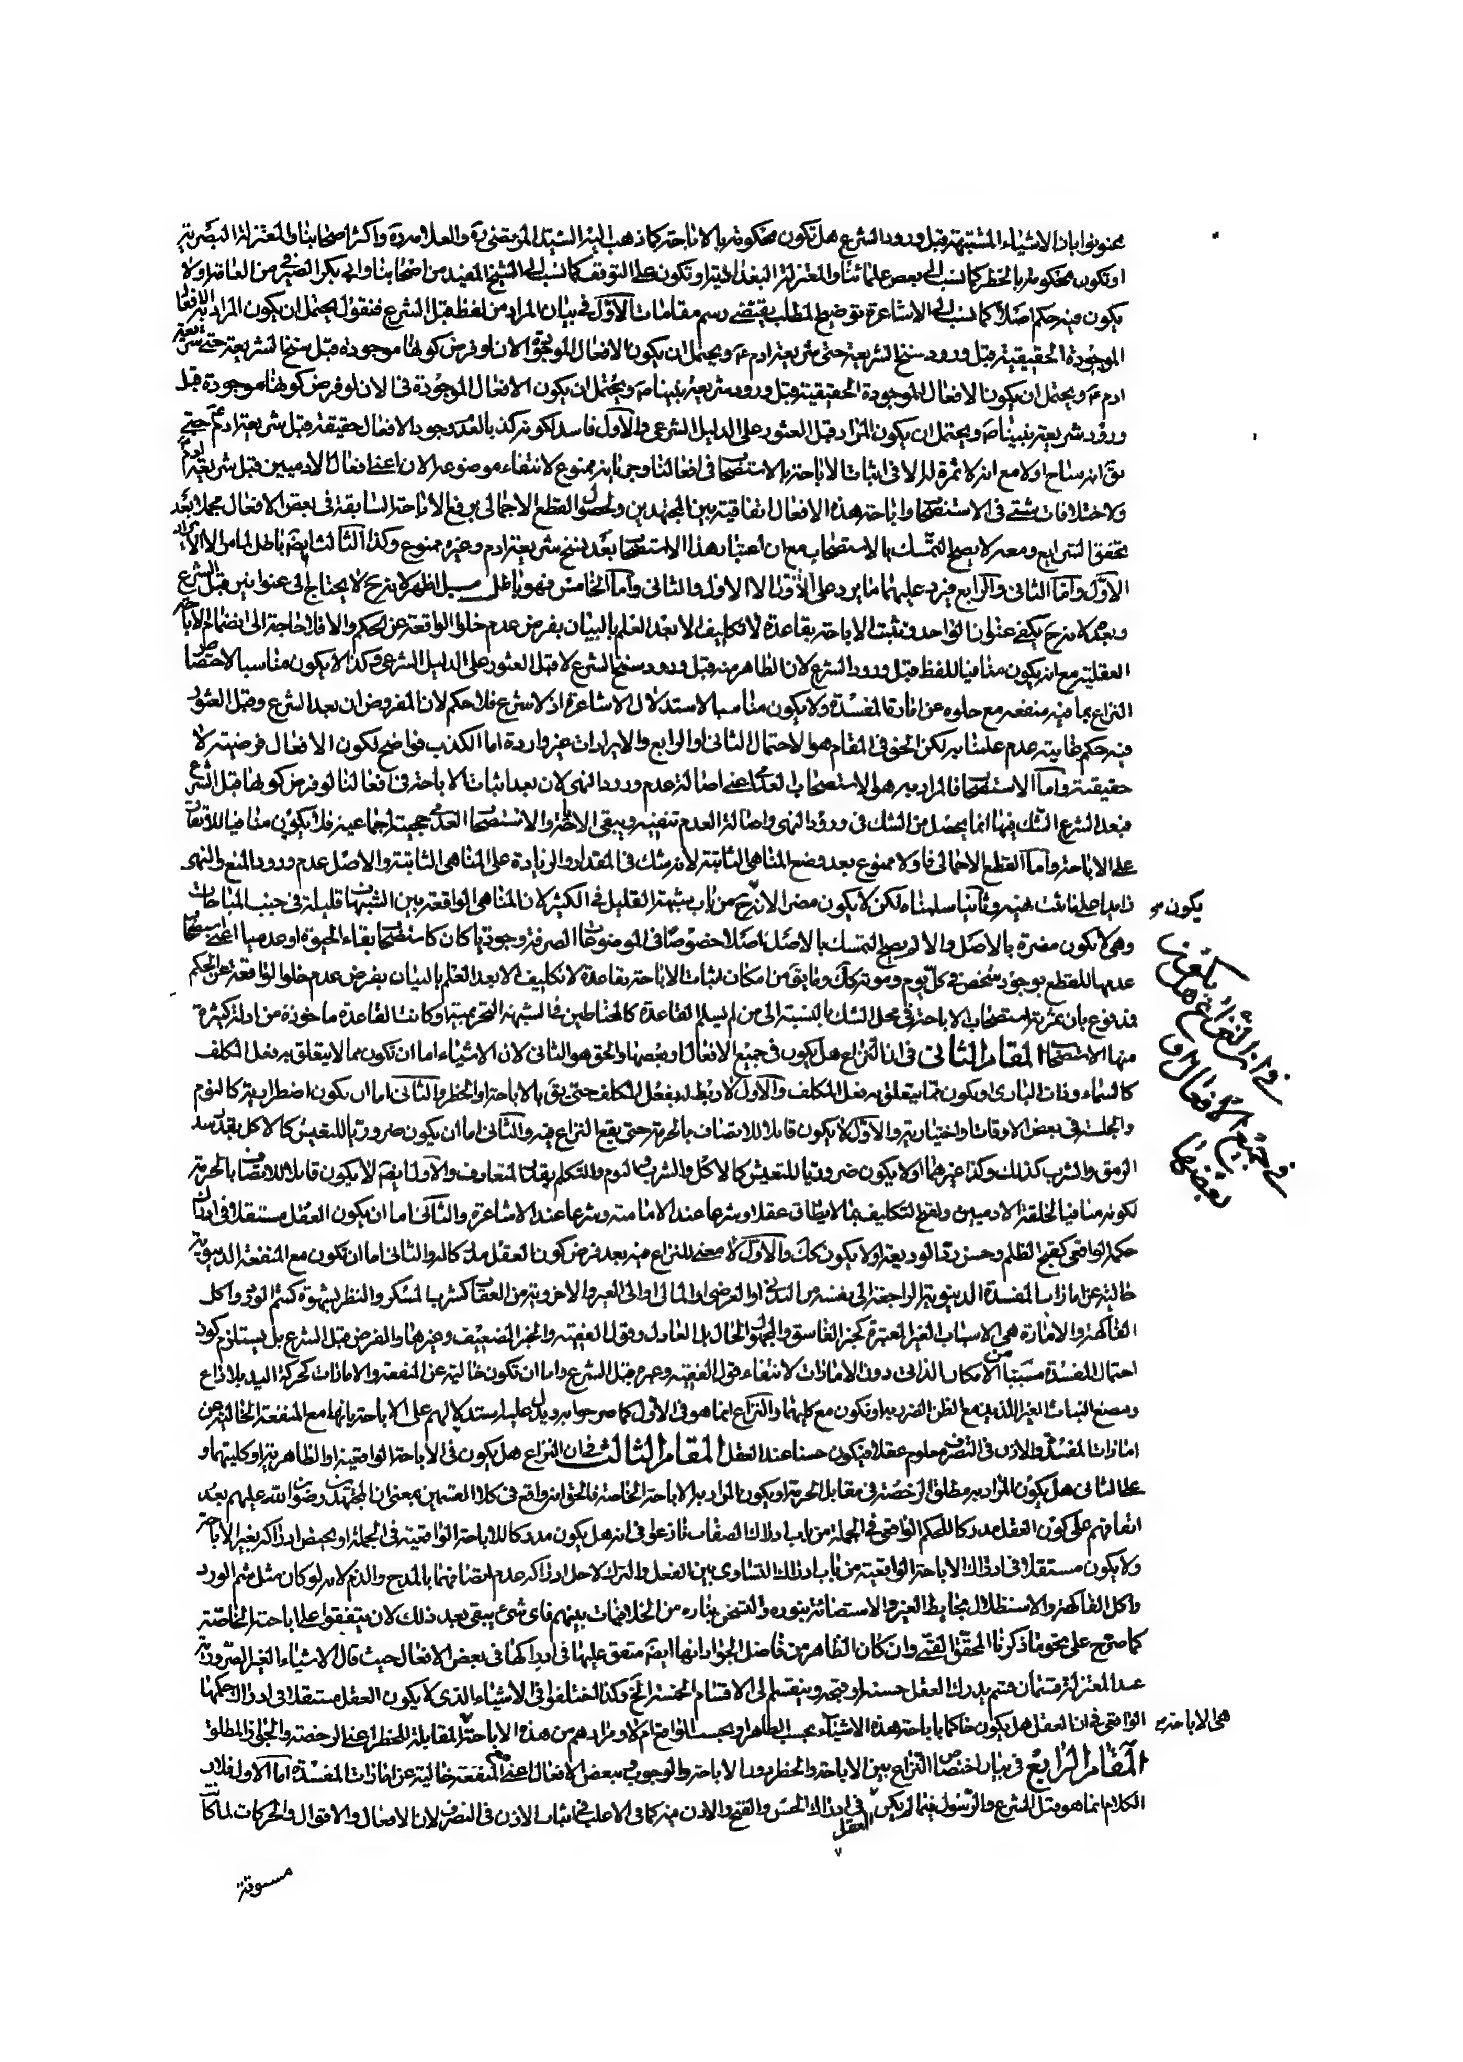 عنونوا بان الاشياء المشتبهة قبل ورود الشرع هل تكون محكومة بالاباحة كما ذهب اليه السيد المرتضى ره والعلامة ره واكثر اصحابنا والمعتزلة البصرية
او تكون محكومة بالحظر كما نسب الى بعض علمائنا والمعتزلة البغدادية او تكون على التوقف كما نسب الى الشيخ المفيد من اصحابنا وابي بكر الصيرفي من العامة او لا
يكون فيه حكم اصلا كما نسب الى الاشاعرة توضيح المطلب يقتضى رسم مقامات الاول في بيان المراد من لفظ قبل الشرع فنقول يحتمل ان يكون المراد به الافعال
الموجودة الحقيقية قبل ورود سنخ الشريعة حتى شريعة ادم ع ويحتمل ان يكون الافعال الموجودة الان لو فرض كونها موجودة قبل سنخ الشريعة حتى شريعة
ادم ع ويحتمل ان يكون الافعال الموجودة الحقيقية قبل ورود شريعة نبينا ص ويحتمل ان يكون الافعال الموجودة في الان لو فرض كونها موجودة قبل
ورود شريعة نبينا ص ويحتمل ان يكون المراد قبل العثور على الدليل الشرعي والاول فاسد لكونه كذبا لعدم وجود الافعال حقيقة قبل شريعة ادم ع حتى
يق انه مباح او لا مع انه لا ثمرة له الا في اثبات الاباحة بالاستصحاب في افعالنا وجريانه ممنوع لانتفاء موضوعه الان اعنى افعال الادميين قبل شريعة ادم
ولاختلافات شتى في الاستصحاب واباحة هذه الافعال اتفاقية بين المجتهدين ولحصول القطع الاجمالى برفع الاباحة السابقة في بعض الافعال مجملا بعد
تحقق الشرايع ومعه لا يصح التمسك بالاستصحاب مع ان اعتبار هذا الاستصحاب بعد نسخ شريعة ادم وغيره ممنوع وكذا الثالث ايضا باطل لما مر الا الايراد
الاول واما الثاني والرابع فيرد عليهما ما يرد على الاول الا الاول والثاني واما الخامس فهو باطل لانه ح لا يحتاج الى عنوانين قبل الشرع
وبعده لانه ح يكفى عنوان الواحد فيثبت الاباحة بقاعدة لا تكليف الا بعد العلم بالبيان بفرض عدم خلو الواقعة عن الحكم والا فلا حاجة الى انضمام الاباحة
العقلية مع انه يكون منافيا للفظ قبل ورود الشرع لان الظاهر منه قبل ورود سنخ الشرع لا قبل العثور على الدليل الشرعى وكذا لا يكون مناسبا لاختصاص
النزاع بما فيه منفعة مع خلوه عن امارة المفسدة ولا يكون مناسبا لاستدلال الاشاعرة اذ لا شرع فلا حكم لان المفروض ان بعد الشرع وقبل العثور
فيه حكم غايته عدم علمنا به لكن الحق في المقام هو الاحتمال الثاني او الرابع والايرادات غير واردة اما الكذب فواضح لكون الافعال فرضية لا
حقيقة واما الاستصحاب فالمراد به هو الاستصحاب العدمى اعنى اصالة عدم ورود النهى لان بعد اثبات الاباحة في افعالنا لو فرض كونها قبل الشرع
فبعد الشرع الشك فيها انما يحصل من الشك في ورود النهى واصالة العدم تنفيه ويبقى الاباحة والاستصحاب العدمى حجيته اجماعية فلا يكون منافيا للاتفاق
على الاباحة واما القطع الاجمالى فاولا ممنوع بعد وضع المناهى الثابتة لانه شك في المقدار والزيادة على المناهى الثابتة والاصل عدم ورود المنع والنهى
زايدا على ما ثبت فيه وثانيا سلمناه لكن لا يكون مضرا لانه ح من باب شبهة القليل في الكثير لان المناهى الواقعة بين الشبهات قليلة في جنب المباحات
يكون
وهى لا تكون مضرة بالاصل والا لم يصح التمسك بالاصل اصلا خصوصا في الموضوعات الصرفة وجوديا كان كاستصحاب بقاء الحيوة او عدميا اعنى استصحاب
عدمها للقطع بوجود شخص في كل يوم وموته كك وما يق من امكان اثبات الاباحة بقاعدة لا تكليف الا بعد العلم بالبيان بفرض عدم خلو الواقعة عن الحكم
فمدفوع بان ثمرة استصحاب الاباحة في محل الشك بالنسبة الى من لم يسلم القاعدة كالمحتاطين في الشبهة التحريمية او كانت القاعدة ماخوذة من ادلة كثيرة
منها الاستصحاب المقام الثاني في ان النزاع هل يكون في جميع الافعال او بعضها والحق هو الثاني لان الاشياء اما ان تكون مما لا يتعلق به فعل المكلف
في ان النزاع هل يكون
في جميع الافعال او
بعضها
كالسماء وذات البارى او يكون مما يتعلق به فعل المكلف والاول لا ربط له بفعل المكلف حتى يق بالاباحة او الحظر والثاني اما ان يكون اضطرارية كالنوم
والجملة في بعض الاوقات او اختيارية والاول لا يكون قابلا للاتصاف بالحرمة حتى يقع النزاع فيه والثاني اما ان يكون ضروريا للتعيش كالاكل بقدر سد
الرمق والشرب كذلك وكذا غيرهما او لا يكون ضروريا للتعيش كالاكل والشرب والنوم والتكلم بقدر المتعارف والاول ايضا لا يكون قابلا للاتصاف بالحرمة
لكونه منافيا لخلقة الادميين ولقبح التكليف بما لا يطاق عقلا وشرعا عند الامامية وشرعا عند الاشاعرة والثاني اما ان يكون العقل مستقلا في ادراك
حكمه الواقعى كقبح الظلم وحسن رد الوديعة او لا يكون كك والاول لا معنى للنزاع فيه بعد فرض كون العقل مدركا له والثاني اما ان تكون مع المنفعة الدنيوية
خالية عن امارات المفسدة الدنيوية الراجعة الى نفسه من البدنى او العرضى او المالى او الى الغير والاخروية من العقاب كشرب المسكر والنظر بشهوة كشم الورد واكل
الفاكهة والامارة هى الاسباب الغير المعتبرة كخبر الفاسق والمجهول الحال بل العادل وقول الفقيه والخبر الضعيف وغيرها والفرض قبل الشرع بل يستلزم كون
احتمال المفسدة مسببا من الامكان الذاتى دون الامارات لانتفاء قول الفقيه وغيره قبل الشرع واما ان تكون خالية عن المنفعة والامارات كحركة اليد بلا داع
ومضغ النبات الغير اللذيذ مع الظن الضرر به او تكون مع كليهما والنزاع انما هو في الاول كما صرحوا به ويدل عليه استدلالهم على الاباحة بانها مع المنفعة الخالية عن
امارات المفسدة والاذن في التصرف معلوم عقلا فيكون حسنا عند العقل المقام الثالث في ان النزاع هل يكون في الاباحة الواقعية او الظاهرية او كليتهما و
على الثاني هل يكون المراد به مطلق الرخصة في مقابل الحرمة او يكون المراد به الاباحة الخاصة فالحق انه واقع في كلا القسمين بمعنى ان المجتهدين رضوان الله عليهم بعد
اتفاقهم على كون العقل مدركا للحكم الواقعى في الجملة من باب ادراك الصفات تنازعوا في انه هل يكون مدركا للاباحة الواقعية في الجملة او يختص ادراكه بغير الاباحة
ولا يكون مستقلا في ادراك الاباحة الواقعية من باب ادراك التساوى بين الفعل والترك لاجل ادراكه عدم اتصافهما بالمدح والذم لانه لو كان مثل شم الورد
واكل الفاكهة والاستظلال بحايط الغير والاستضائة بنوره والتسخن بناره من الخلافيات بينهم فاى شىء يبقى بعد ذلك لان يتفقوا على اباحته الخاصة
كما صرح على نحو ما ذكرنا المحقق القمى وان كان الظاهر من فاضل الجواد انها ايضا متفق عليها في ادراكها في بعض الافعال حيث قال الاشياء الغير الضرورية
عند المعتزلة قسمان قسم يدرك العقل حسنه او قبحه وينقسم الى الاقسام الخمسة الخ وكذا اختلفوا في الاشياء الذى لا يكون العقل مستقلا في ادراك حكمها
الواقعى في ان العقل هل يكون حاكما باباحة هذه الاشياء بحسب الظاهر وبحسب الواقع ام لا ومرادهم من هذه الاباحة المقابلة للحظر اعنى الرخصة والجواز المطلق
هى الاباحة
المقام الرابع في بيان اختصاص النزاع بين الاباحة والحظر دون الاباحة والوجوب وببعض الافعال اعنى منفعة خالية عن امارات المفسدة اما الاول فلان
الكلام انما هو قبل الشرع والرسول فيما لم يكن العقل في ادراك الحسن والقبح والاذن فيه كما في الاغلب في اثبات الاذن في التصرف لان الافعال والاقوال والحركات لما كانت
مسبوقة